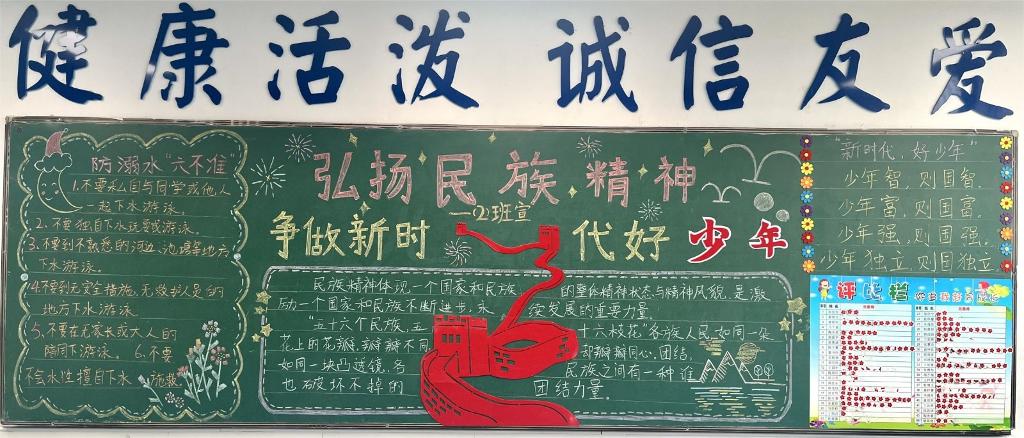 健康活泼 诚信友爱
防溺水“六不准”
1.不要私自与同学或他人
一起下水游泳。
2.不要独自下水玩或游泳。
3.不要到不熟悉的河边、池塘等地方
下水游泳。
4.不要到无安全措施、无救护人员的
地方下水游泳。
5.不要在无家长或大人的
陪同下游泳。 6.不要
不会水性擅自下水 施救
弘扬民族精神
一(2)班宣
争做新时代好少年
民族精神体现一个国家和民族的整体精神状态与精神风貌,是激
励一个国家和民族不断进步、永续发展的重要力量。
“五十六个民族,五十六枝花”各族人民如同一朵
花上的花瓣,瓣瓣不同,却瓣瓣同心,团结,
如同一块凸透镜,各民族之间有一种谁
也破坏不掉的团结力量。
“新时代,好少年”
少年智,则国智,
少年富,则国富,
少年强,则国强,
少年独立,则国独立
评比栏